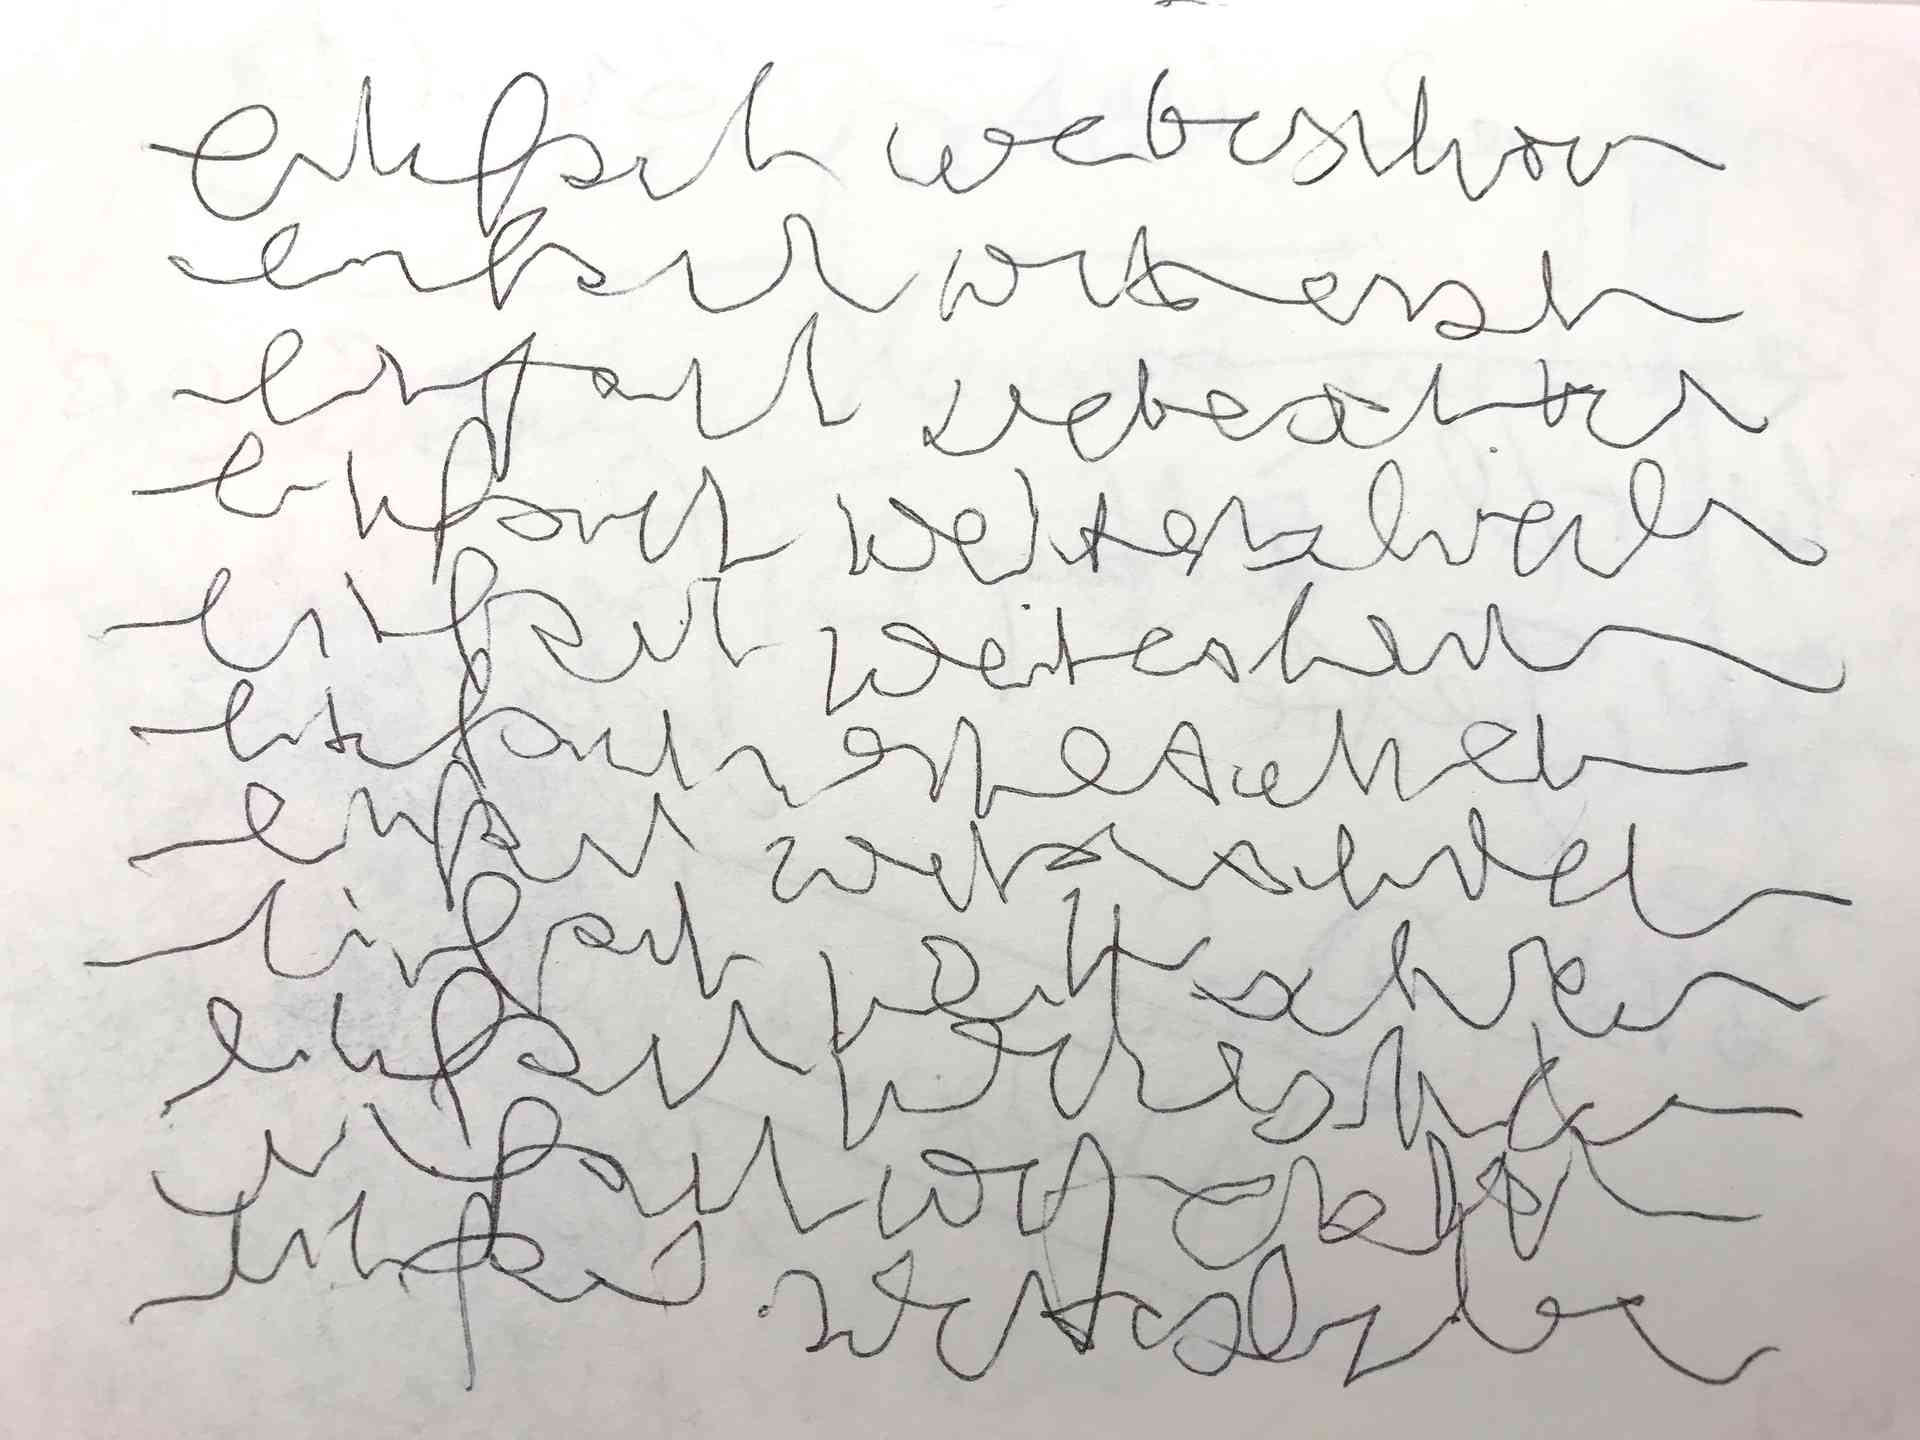 einfach weiterschreiben
einfach weiterschreiben
einfach weiterschreiben
einfach weiterschreiben
einfach weiterschreiben
einfach
einfach weiterschreiben
einfach weiterschreiben
einfach weiterschreiben
einfach weiterschreiben
einfach weiterschreiben